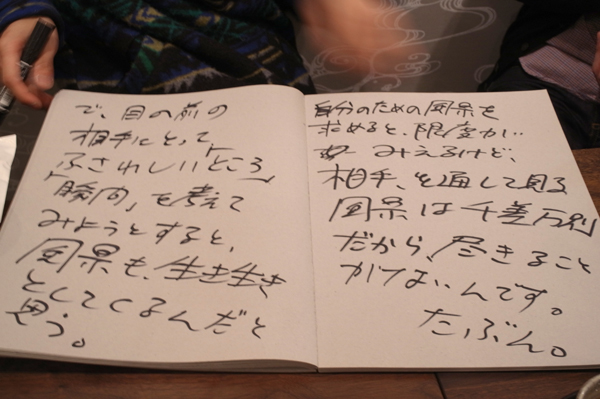 で、目の前の
相手にとって
ふさわしい「ところ」
「瞬間」を考えて
みようとすると、
風景も、生き生き
としてくるんだと
思う。
自分のための風景を
求めると、限度が…
みえるけど、
相手、を通して見る
風景は千差万別
だから、尽きること
がないんです。
たぶん。